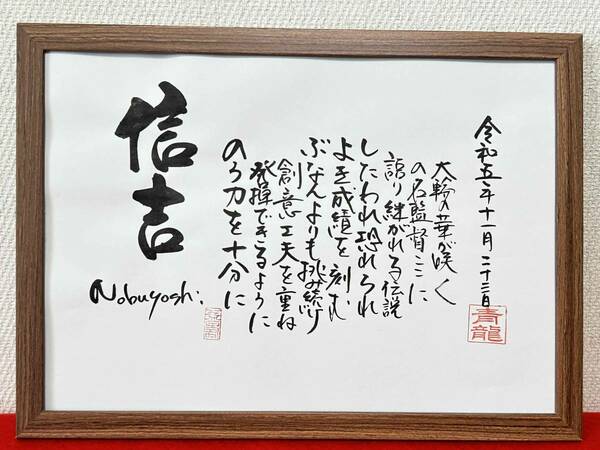 信吉
Nobuyoshi.
のう力を十分に
発揮できるように
創意工夫を重ね
ぶなんよりも挑み続け
よき成績を刻む
したわれ恐れられ
語り継がれる伝説
の名監督ここに
大輪の華が咲く
令和五年十一月二十三日
青龍